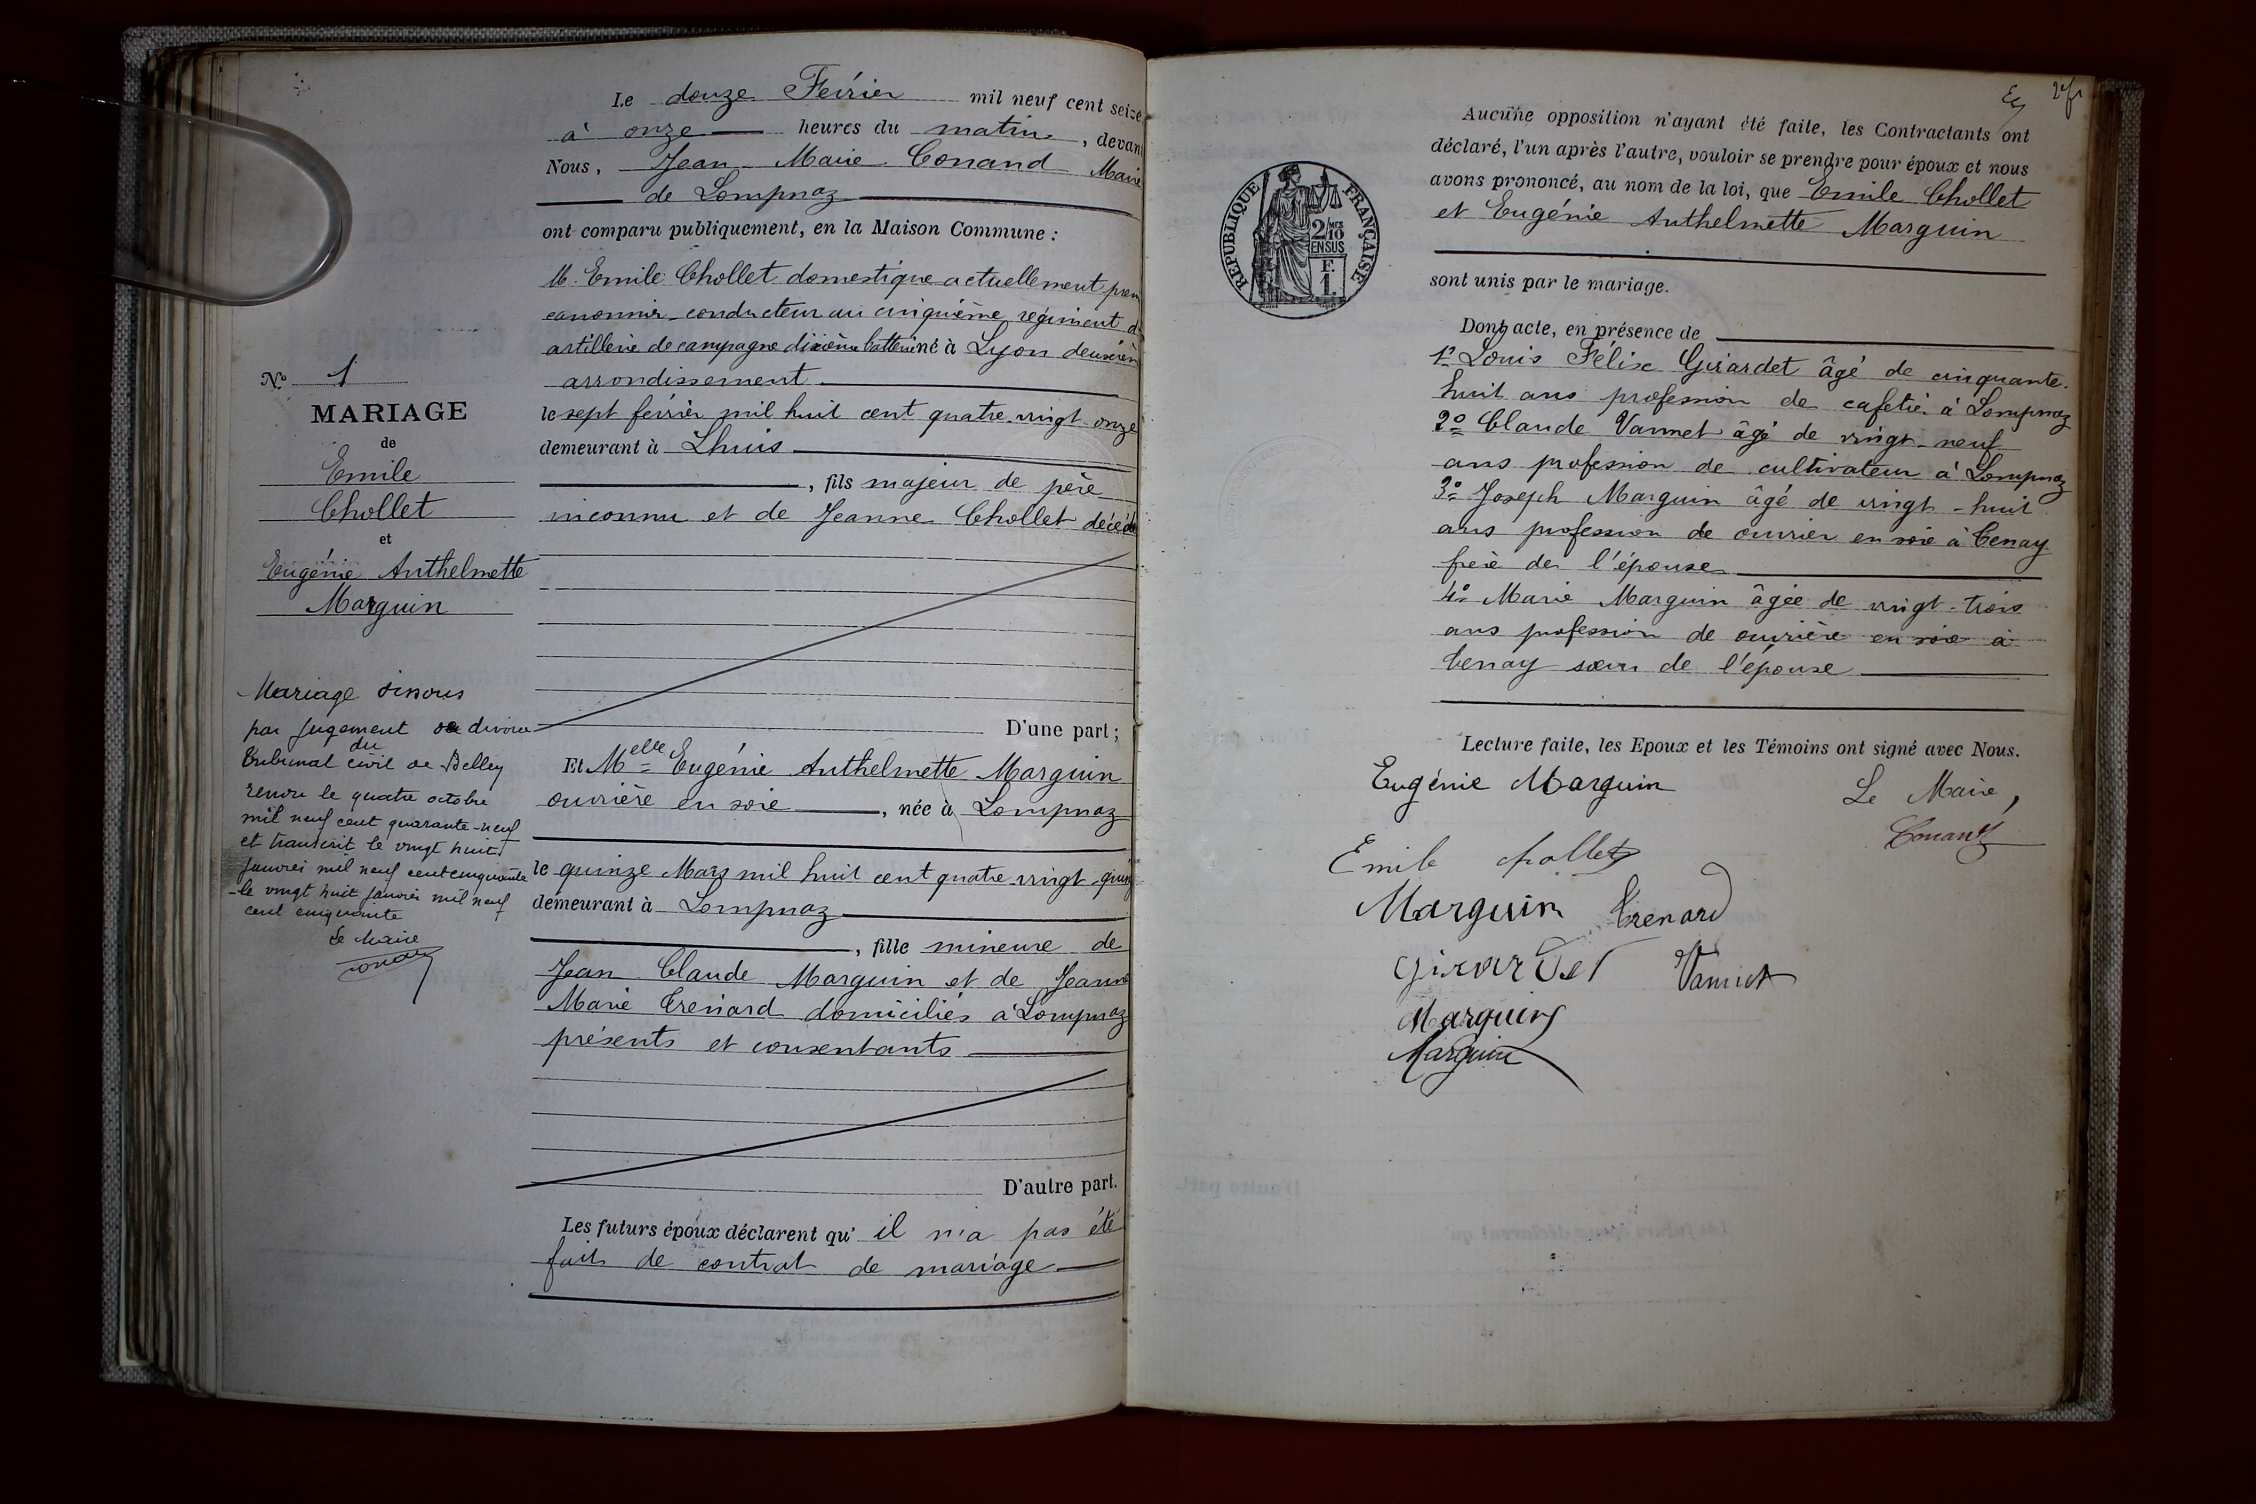 Le douze Février mil neuf cent seize
à onze heures du matin, devant
Nous, Jean Marie Conand Maire
de Lompnaz
ont comparu publiquement, en la Maison Commune :
M. Emile Chollet domestique actuellement
canonnier-conducteur au cinquième régiment d
artillerie de campagne dixième batterie né à Lyon deuxièm
arrondissement
le sept février mil huit cent quatre-vingt-onze
demeurant à Lhuis
, fils majeur de père
inconnu et de Jeanne Chollet décédée
D'une part ;
Et Melle Eugénie Anthelmette Marguin
ouvrière en soie, née à Lompnaz
le quinze Mars mil huit cent quatre-vingt-quin
demeurant à Lompnaz
, fille mineure de
Jean Claude Marguin et de Jeanne
Marie Trenard domiciliés à Lompnaz
présents et consentants
D'autre part.
Les futurs époux déclarent qu' il n'a pas été
fait de contrat de mariage
No 1
MARIAGE
de
Emile
Chollet
et
Eugénie Anthelmette
Marguin
Mariage dissous
par jugement de divorce
du
tribunal civil de Belley
rendu le quatre octobre
mil neuf cent quarante-neuf
et transcrit le vingt huit
janvier mil neuf cent cinquante
le vingt huit janvier mil neuf
cent cinquante
Le Maire
2e f
RÉPUBLIQUE FRANÇAISE
2/10
EN SUS
F.
1.
Aucune opposition n'ayant été faite, les Contractants ont
déclaré, l'un après l'autre, vouloir se prendre pour époux et nous
avons prononcé, au nom de la loi, que Emile Chollet
et Eugénie Anthelmette Marguin
sont unis par le mariage.
Dont acte, en présence de
1º Louis Félix Girardet âgé de cinquante-
huit ans profession de cafetier à Lompnaz
2º Claude Vannet âgé de vingt-neuf
ans profession de cultivateur à Lompnaz
3º Joseph Marguin âgé de vingt-huit
ans profession de ouvrier en soie à Tenay
frère de l'épouse
4º Marie Marguin âgée de vingt-trois
ans profession de ouvrière en soie à
Tenay sœur de l'épouse
Lecture faite, les Epoux et les Témoins ont signé avec Nous.
Eugénie Marguin
Le Maire,
Conand
Emile chollet
Marguin Trenard
Girardet Vannet
Marguin
Marguin